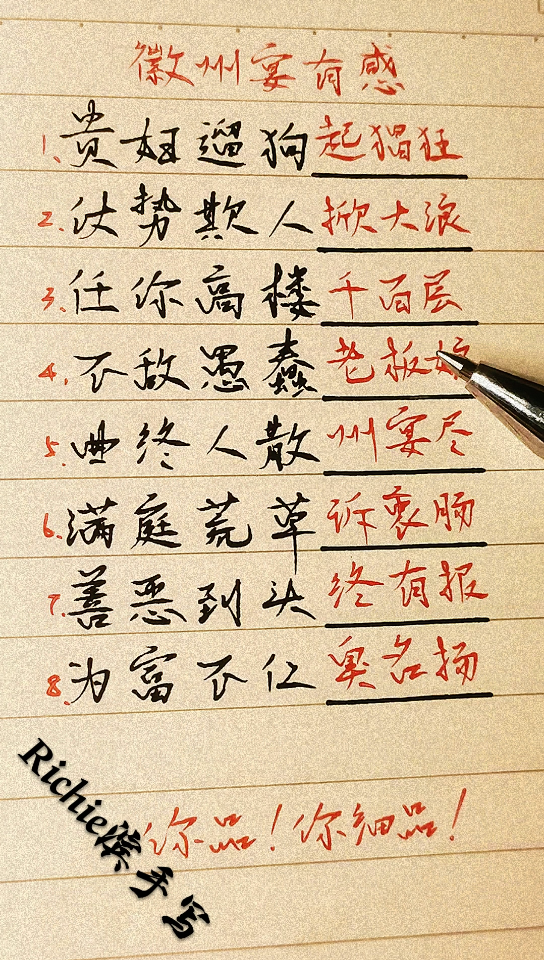 徽州宴有感
1、贵妇遛狗起猖狂
2、仗势欺人掀大浪
3、任你高楼千百层
4、不敌愚蠢老板娘
5、曲终人散州宴尽
6、满庭荒草诉衷肠
7、善恶到头终有报
8、为富不仁臭名扬
你品！你细品！
Richie濮手写